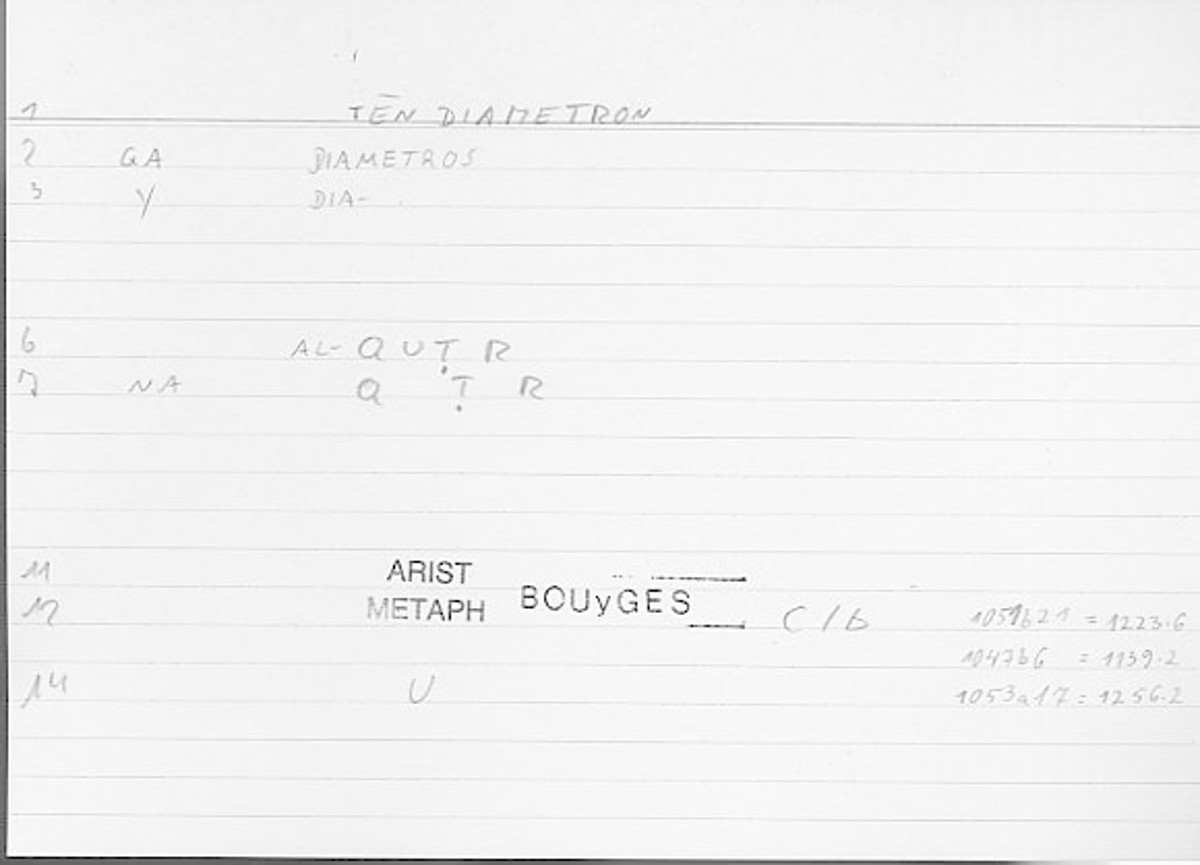 1 TĒN DIAMETRON
2 GA DIAMETROS
3 Y DIA-
6 AL- Q U Ṭ R
7 NA Q Ṭ R
11 ARIST
12 METAPH BOUyGES C/b 1051b21 = 1223.6
1047b6 = 1139.2
14 U 1053a17 = 1256.2